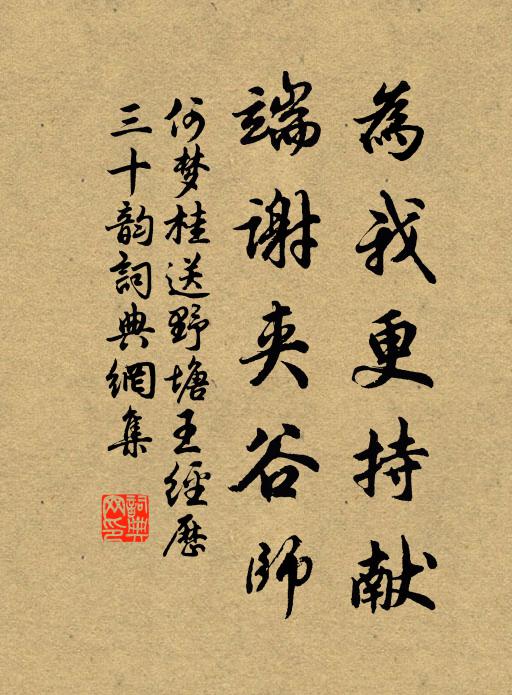 為我更持献
端謝夹谷師
何梦桂送野塘王經歷
三十韵詞典網集
詞典網印